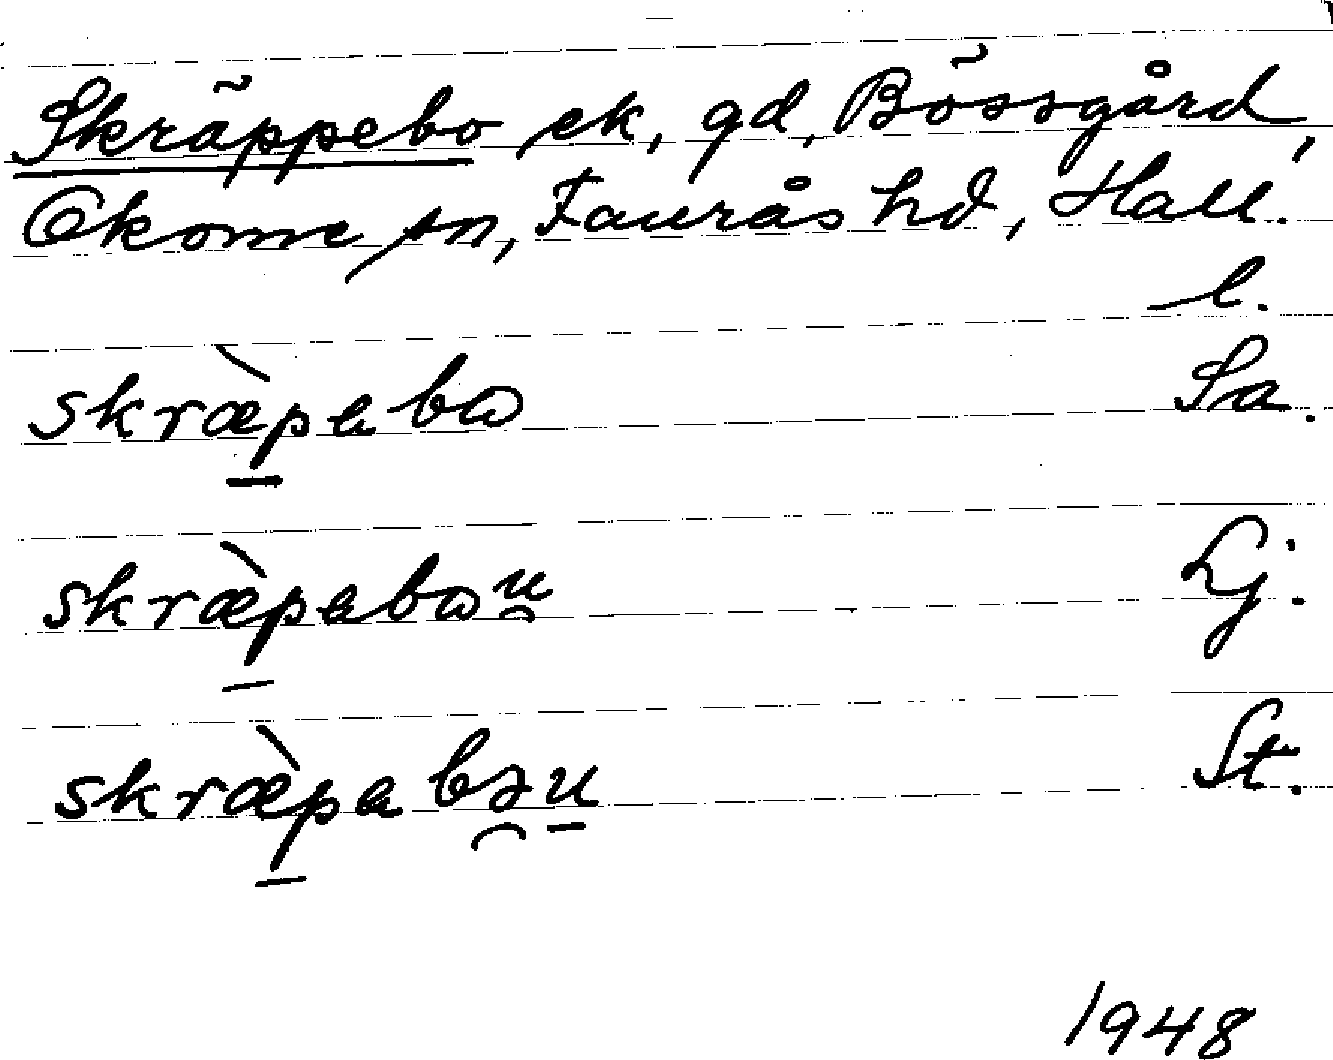 Skräppebo ek, gd, Bössgård,
Okome sn, Faurås hd, Hall.
l.
skræ̀pabɷ Sa.
skræ̀pabɷu̯ Lj.
skræ̀pabɘu St.
1948